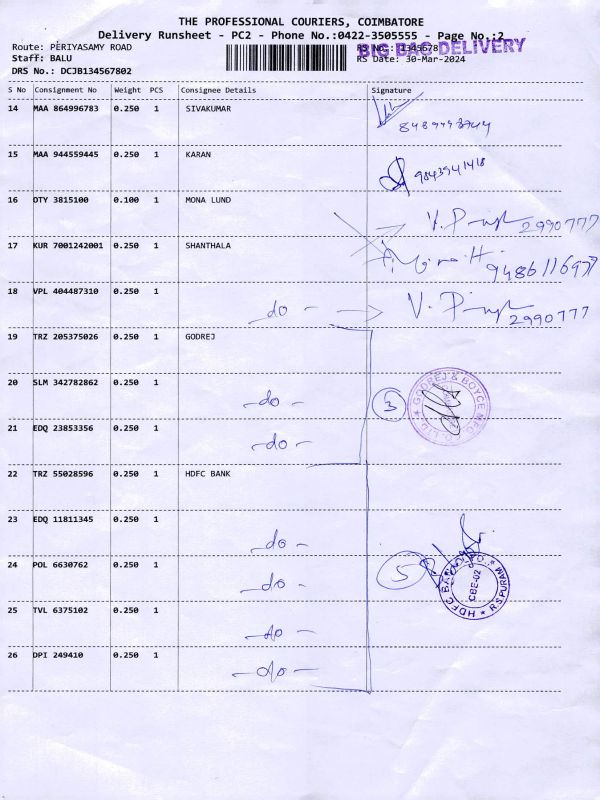 THE PROFESSIONAL COURIERS, COIMBATORE
Delivery Runsheet - PC2 - Phone No.:0422-3505555 - Page No.:2
Route: PERIYASAMY ROAD
RS No.: 1345678
BIG BAG DELIVERY
Staff: BALU
RS Date: 30-Mar-2024
DRS No.: DCJB134567802
S No Consignment No Weight PCS Consignee Details Signature
14 MAA 864996783 0.250 1 SIVAKUMAR
15 MAA 944559445 0.250 1 KARAN
9843941418
16 OTY 3815100 0.100 1 MONA LUND
2990777
17 KUR 7001242001 0.250 1 SHANTHALA
18 VPL 404487310 0.250 1
- do -
2990777
19 TRZ 205375026 0.250 1 GODREJ
20 SLM 342782862 0.250 1
- do -
3
GODREJ & BOYCE MFG. CO. LTD.
21 EDQ 23853356 0.250 1
- do -
22 TRZ 55028596 0.250 1 HDFC BANK
23 EDQ 11811345 0.250 1
- do -
24 POL 6630762 0.250 1
- do -
5
HDFC BANK LTD. * R.S.PURAM *
CBE-02
25 TVL 6375102 0.250 1
- do -
26 DPI 249410 0.250 1
- do -